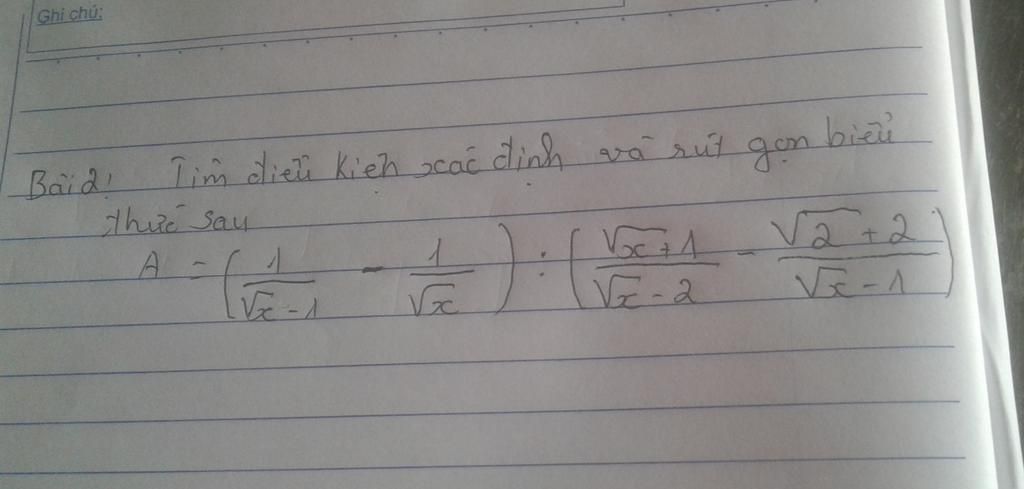 Ghi chú:
Bài 2: Tìm điều kiện xác định và rút gọn biểu
thức sau
A = (1/(√x-1) - 1/√x) : ((√x+1)/(√x-2) - (√2+2)/(√x-1))